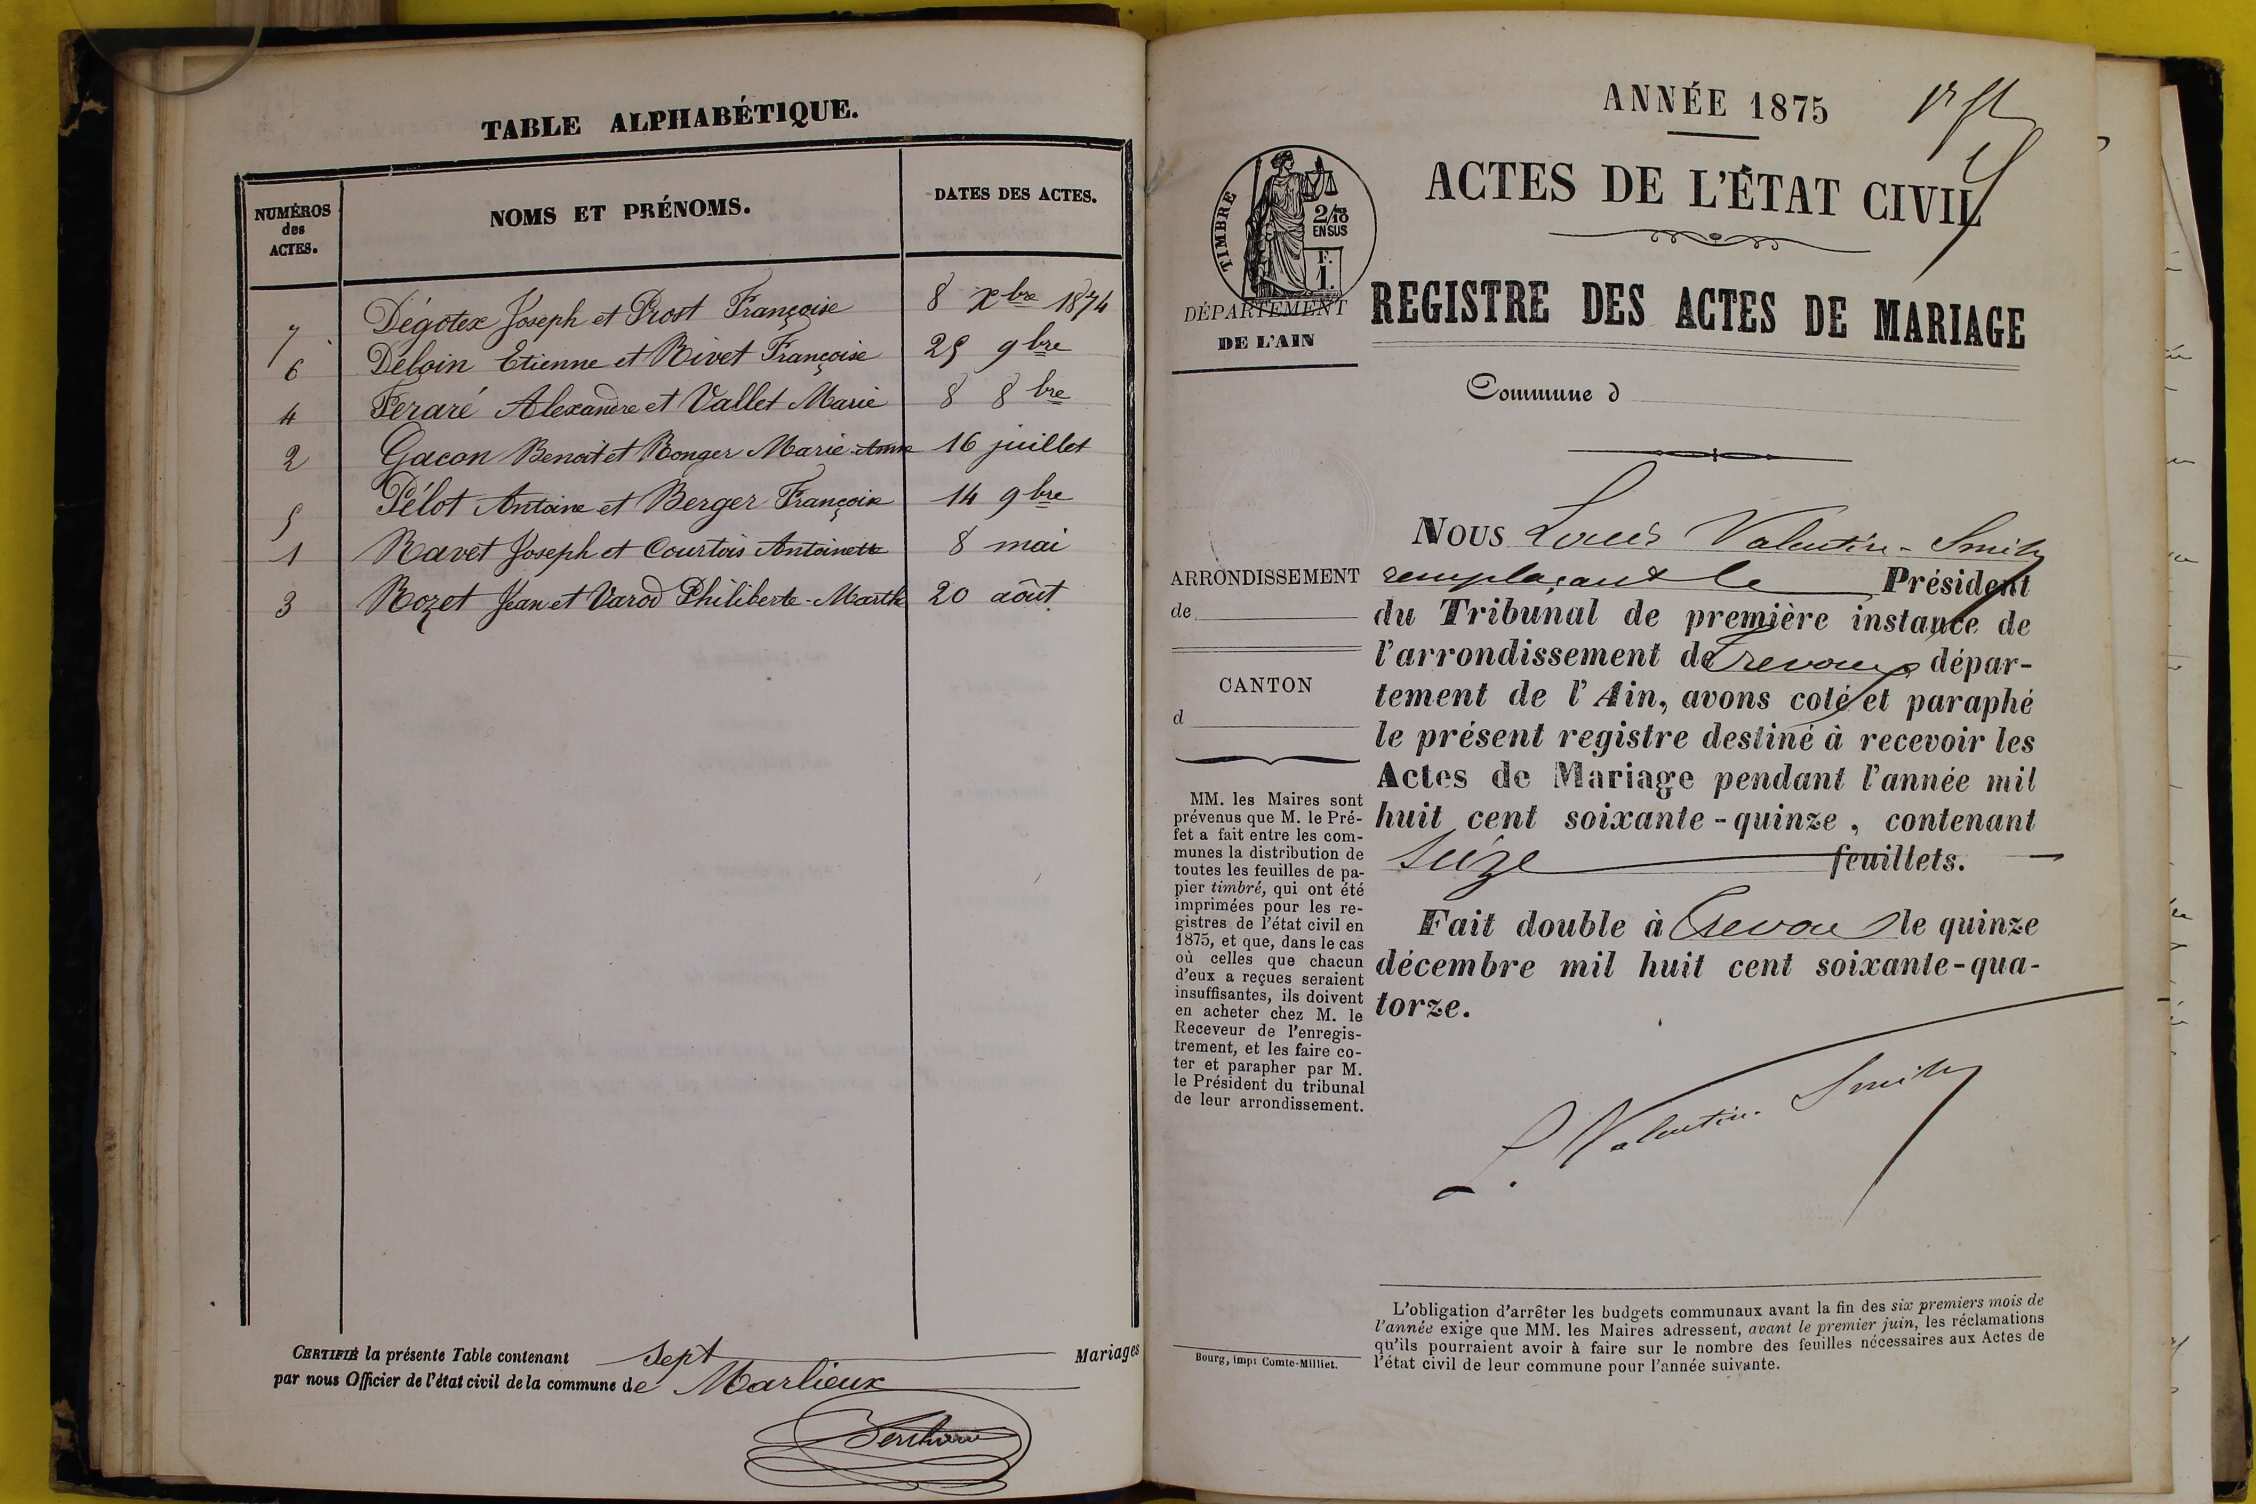 TABLE ALPHABÉTIQUE.
NUMÉROS
des
ACTES.
NOMS ET PRÉNOMS.
DATES DES ACTES.
7 Dégotex Joseph et Prost Françoise 8 Xbre 1874
6 Deloin Etienne et Rivet Françoise 25 9bre
4 Feraré Alexandre et Vallet Marie 8 8bre
2 Gacon Benoit et Ronger Marie Anne 16 juillet
5 Pélot Antoine et Berger Françoise 14 9bre
1 Ravet Joseph et Courtois Antoinette 8 mai
3 Rozet Jean et Varod Philiberte-Marthe 20 aôut
CERTIFIÉ la présente Table contenant sept Mariages
par nous Officier de l'état civil de la commune de Marlieux
ANNÉE 1875
ACTES DE L'ÉTAT CIVIL
TIMBRE
2/10
EN SUS
F.
1.
DÉPARTEMENT
DE L'AIN
REGISTRE DES ACTES DE MARIAGE
Commune d
ARRONDISSEMENT
de
CANTON
d
MM. les Maires sont
prévenus que M. le Pré-
fet a fait entre les com-
munes la distribution de
toutes les feuilles de pa-
pier timbré, qui ont été
imprimées pour les re-
gistres de l'état civil en
1875, et que, dans le cas
où celles que chacun
d'eux a reçues seraient
insuffisantes, ils doivent
en acheter chez M. le
Receveur de l'enregis-
trement, et les faire co-
ter et parapher par M.
le Président du tribunal
de leur arrondissement.
Bourg, impr Comte-Milliet.
NOUS Louis Valentin-Smith
remplaçant le Président
du Tribunal de première instance de
l'arrondissement de Trevoux dépar-
tement de l'Ain, avons coté et paraphé
le présent registre destiné à recevoir les
Actes de Mariage pendant l'année mil
huit cent soixante-quinze, contenant
seize feuillets.
Fait double à Trevoux le quinze
décembre mil huit cent soixante-qua-
torze.
L. Valentin-Smith
L'obligation d'arrêter les budgets communaux avant la fin des six premiers mois de
l'année exige que MM. les Maires adressent, avant le premier juin, les réclamations
qu'ils pourraient avoir à faire sur le nombre des feuilles nécessaires aux Actes de
l'état civil de leur commune pour l'année suivante.